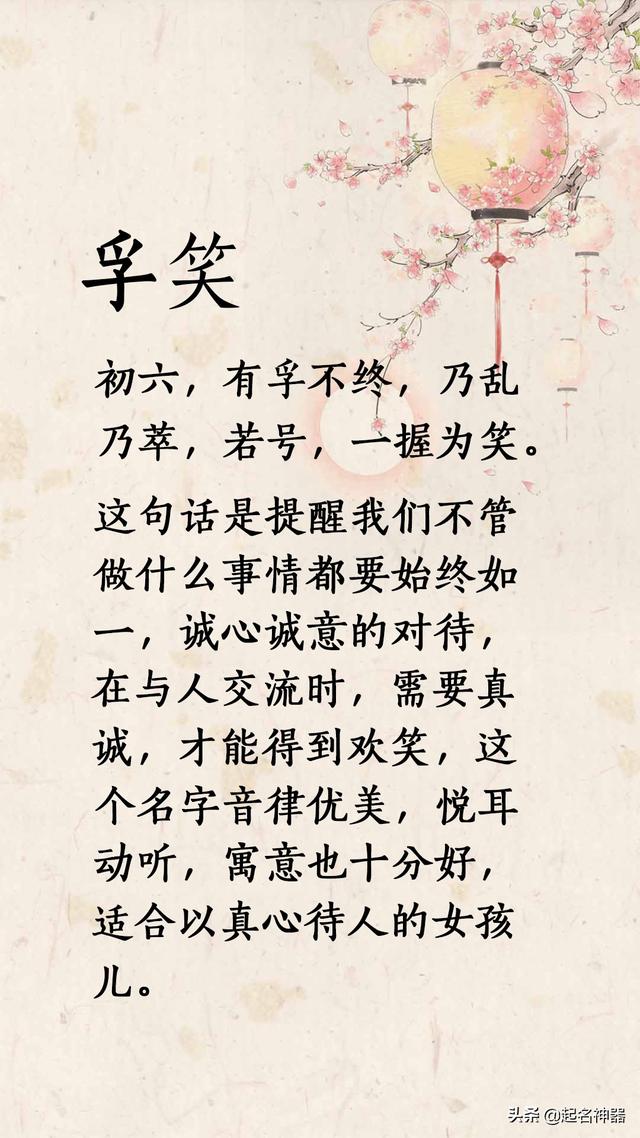 孚笑
初六，有孚不终，乃乱
乃萃，若号，一握为笑。
这句话是提醒我们不管
做什么事情都要始终如
一，诚心诚意的对待，
在与人交流时，需要真
诚，才能得到欢笑，这
个名字音律优美，悦耳
动听，寓意也十分好，
适合以真心待人的女孩
儿。
头条 @起名神器